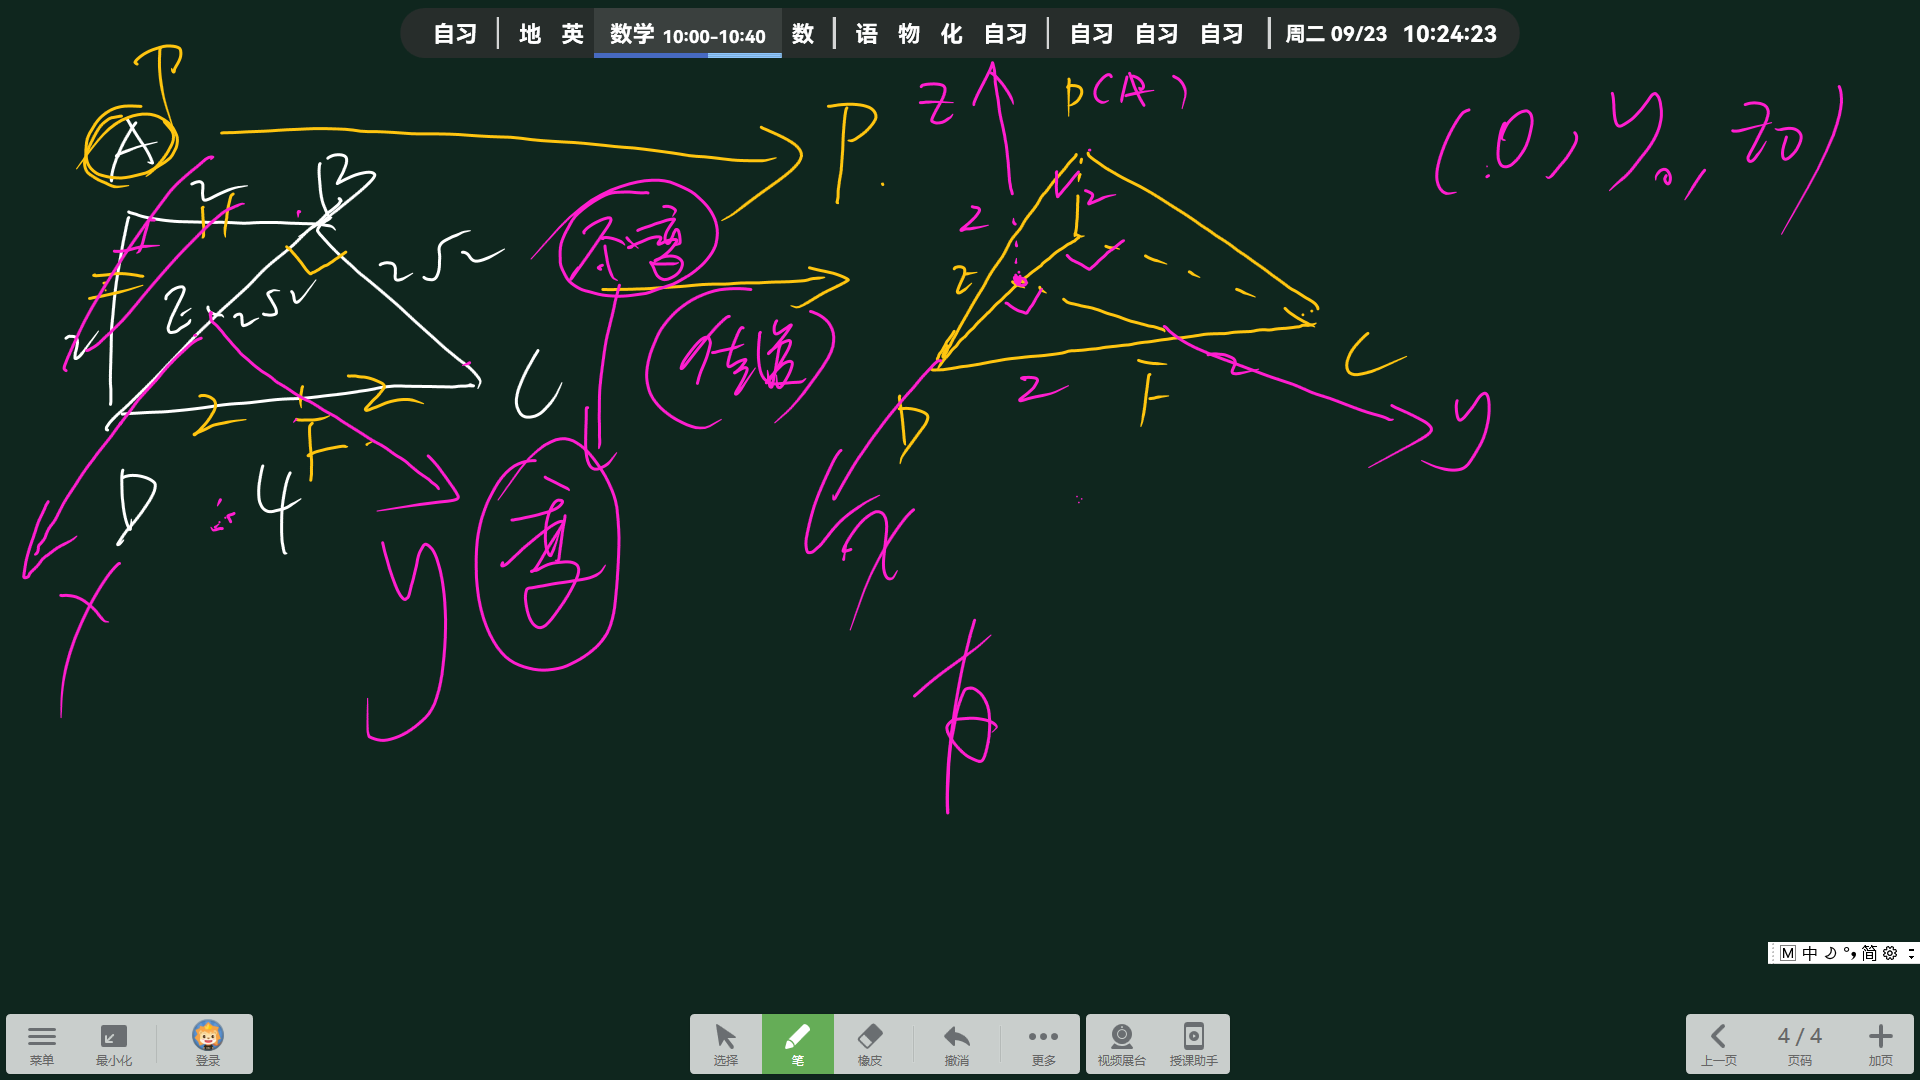 自习 | 地 英 数学 10:00-10:40 数 | 语 物 化 自习 | 自习 自习 自习 | 周二 09/23 10:24:23
P
A
2
B
2
E
2√2
2√2
C
2
2
F
D
4
x
y
P
不
P(A)
z
2
2
2
2
2
D
F
C
x
y
(0, y₀, z₀)
M 中 简
菜单 最小化 登录
选择 笔 橡皮 撤消 更多
视频展台 授课助手
上一页 4 / 4 页码 加页